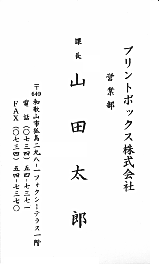 プリントボックス株式会社
営業部
課長
山田太郎
〒649
和歌山市狐島二九八-一フォクシーテラス一階
電話(〇七三四)五四-七三七一
FAX(〇七三四)五四-七三七〇